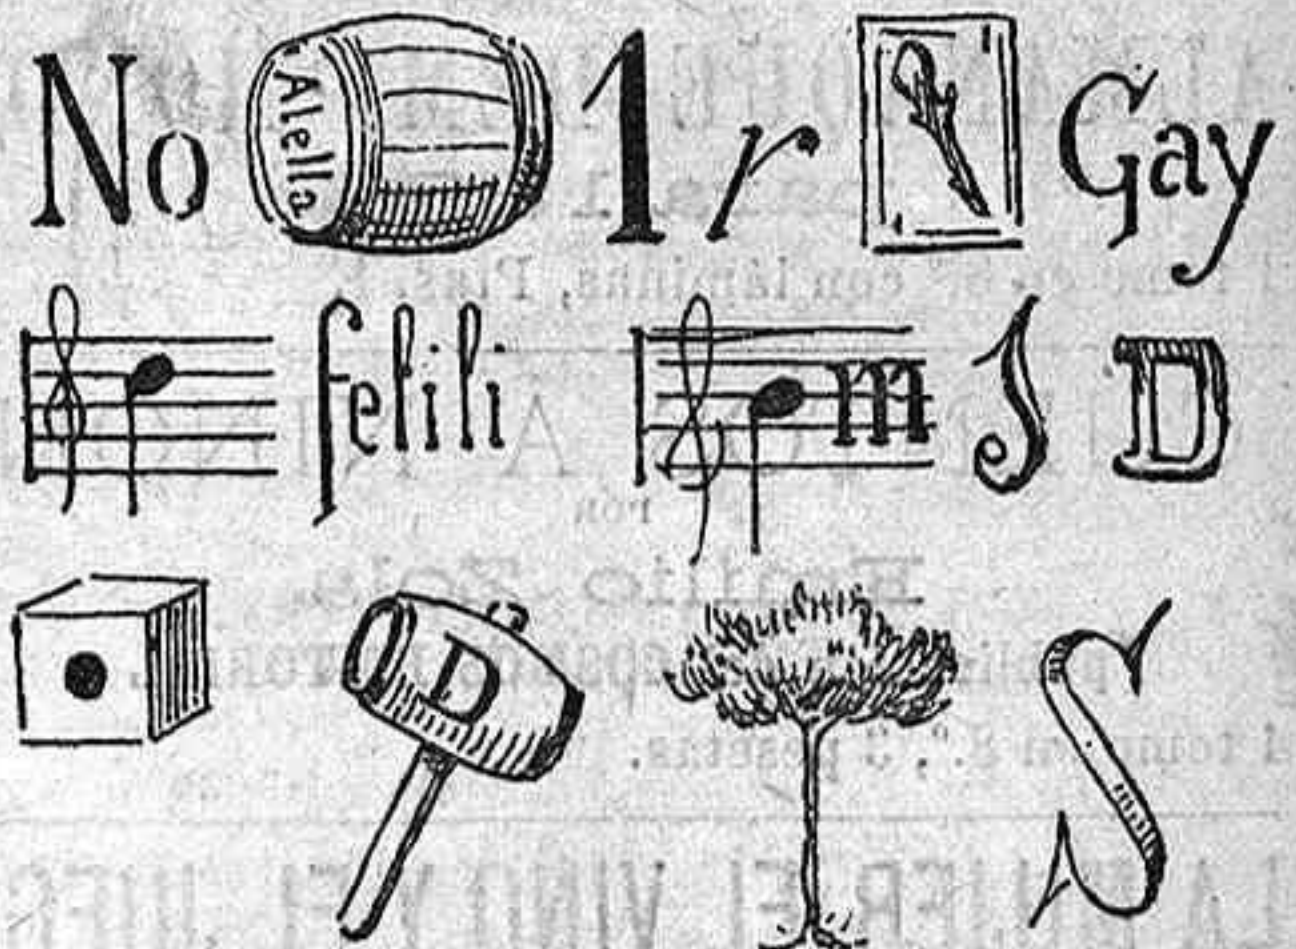 No Alella 1 r Gay
felili m S D
D
S